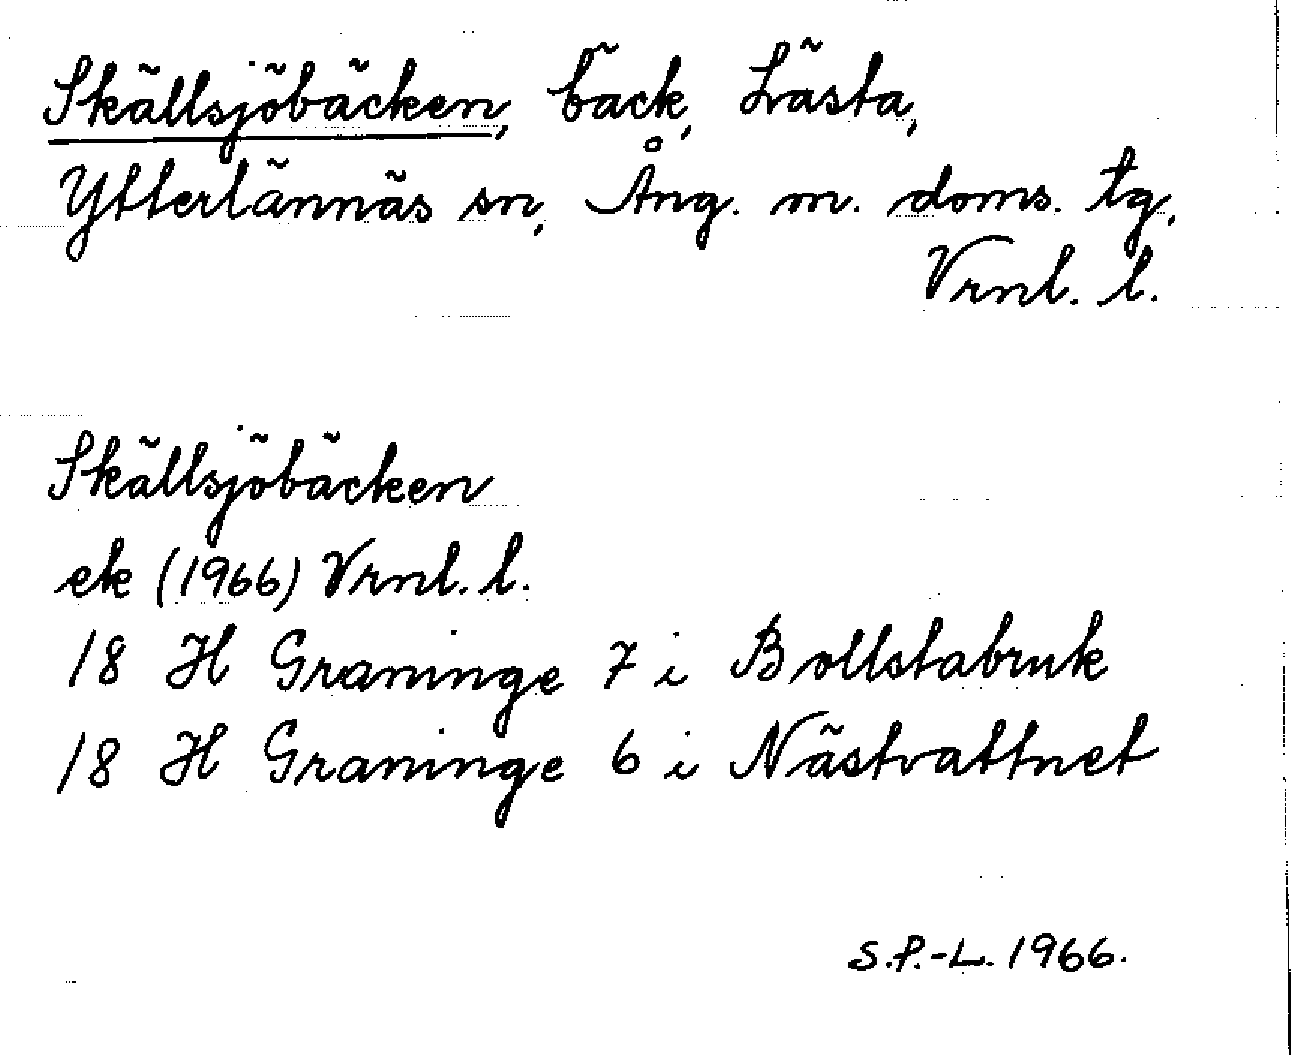 Skällsjöbäcken, bäck, Lästa,
Ytterlännäs sn, Ång. m. doms. tg.
Vrnl. l.
Skällsjöbäcken
ek (1966) Vrnl. l.
18 H Graninge 7 i Bollstabruk
18 H Graninge 6 i Nästvattnet
S.P.-L. 1966.